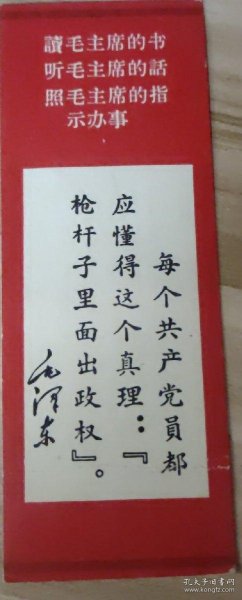 讀毛主席的书
听毛主席的話
照毛主席的指
示办事
每个共产党員都
应懂得这个真理：『
枪杆子里面出政权』。
毛泽东
孔夫子旧书网